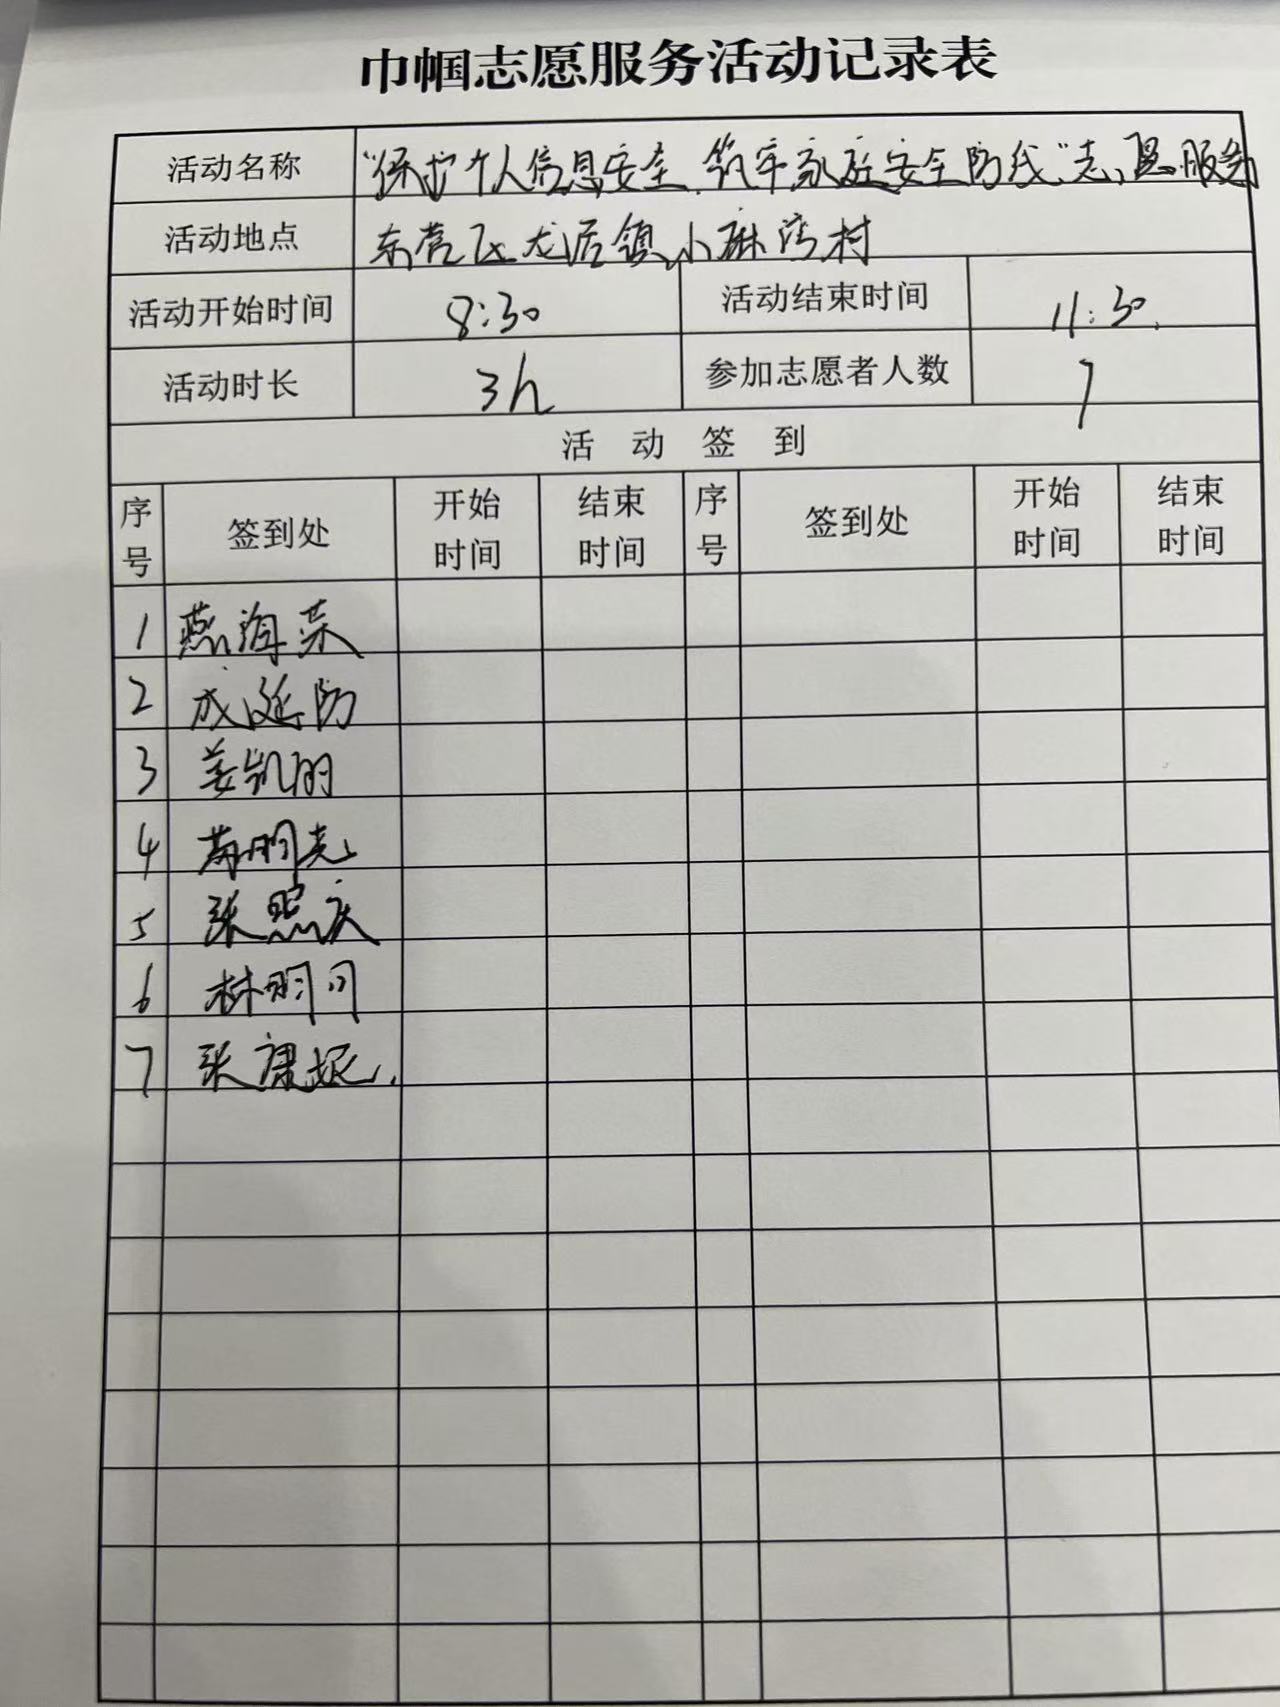 巾帼志愿服务活动记录表
活动名称 "保护个人信息安全 筑牢家庭安全防线"志愿服务
活动地点 东营区龙居镇小麻湾村
活动开始时间 8:30 活动结束时间 11:30
活动时长 3h 参加志愿者人数 7
活 动 签 到
序号 签到处 开始时间 结束时间 序号 签到处 开始时间 结束时间
1 燕海荣
2 成廷防
3 姜凯丽
4 明亮
5 张照庆
6 林明月
7 张康妮